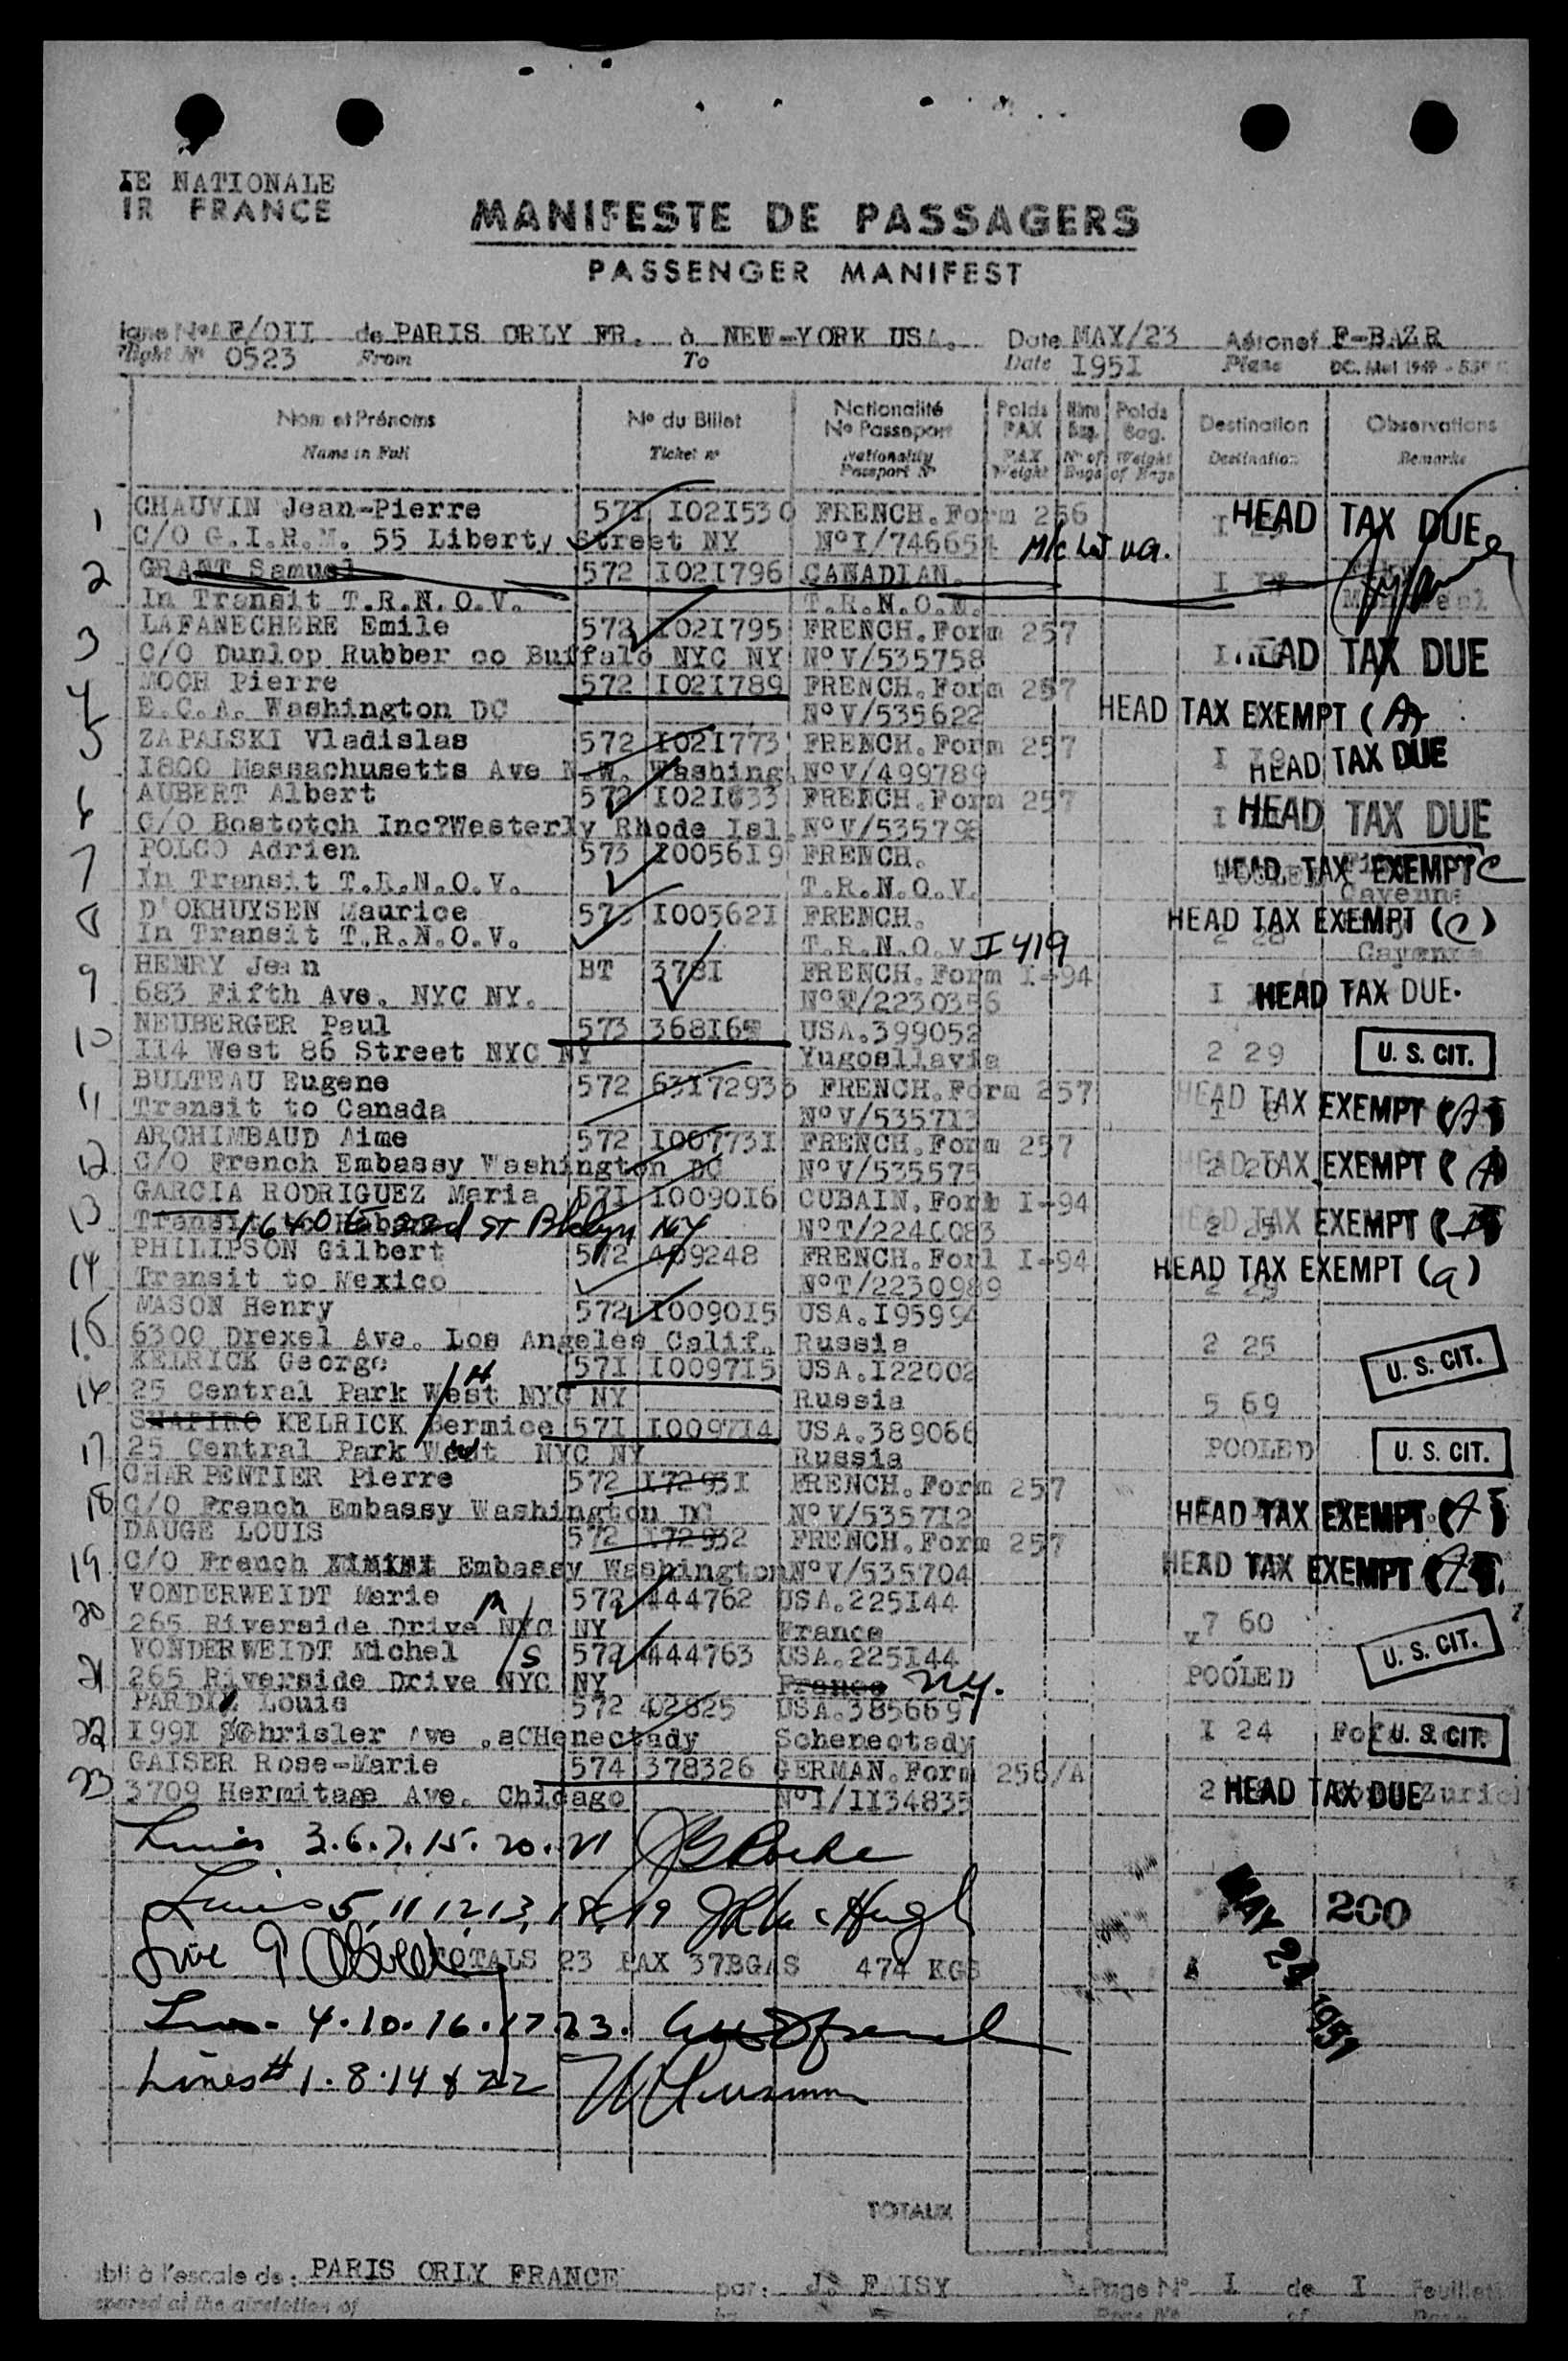 IE NATIONALE
IR FRANCE
MANIFESTE DE PASSAGERS
PASSENGER MANIFEST
AF/OII de PARIS ORLY FR. à NEW-YORK USA. Date MAY/23 Aéronef F-BAZR
Flight Nº 0523 From To Date I95I Plane DC. Mel 1949
Nom et Prénoms Nº du Billet Nationalité Nº Passeport Poids PAX Nbre Bag. Poids Bag. Destination Observations
Name in Full Ticket nº Nationality Passport Nº PAX Weight Nº of Bags Weight of Bags Destination Remarks
1 CHAUVIN Jean-Pierre 57I I02I530 FRENCH.Form 256 HEAD TAX DUE
C/O G.I.R.M. 55 Liberty Street NY NºI/746654
2 GRANT Samuel 572 I02I796 CANADIAN.
In Transit T.R.N.O.V. T.R.N.O.V.
3 LAFANECHERE Emile 572 I02I795 FRENCH.Form 257 HEAD TAX DUE
C/O Dunlop Rubber co Buffalo NYC NY NºV/535758
4 MOCH Pierre 572 I02I789 FRENCH.Form 257 HEAD TAX EXEMPT (A)
E.C.A. Washington DC NºV/535622
5 ZAPALSKI Vladislas 572 I02I773 FRENCH.Form 257 HEAD TAX DUE
I800 Massachusetts Ave N.W. Washing. NºV/499789
6 AUBERT Albert 572 I02I633 FRENCH.Form 257 HEAD TAX DUE
C/O Bostotch Inc?Westerly Rhode Isl. NºV/535798
7 POLCO Adrien 573 I005619 FRENCH. HEAD TAX EXEMPT C
In Transit T.R.N.O.V. T.R.N.O.V. Cayenne
8 D'OKHUYSEN Maurice 573 I00562I FRENCH. HEAD TAX EXEMPT (C)
In Transit T.R.N.O.V. T.R.N.O.V II 419 2 28 Cayenne
9 HENRY Jean BT 378I FRENCH.Form I-94 HEAD TAX DUE.
683 Fifth Ave. NYC NY. NºT/2230356
10 NEUBERGER Paul 573 368I65 USA.399052
II4 West 86 Street NYC NY Yugosllavia 2 29 U. S. CIT.
11 BULTEAU Eugene 572 63I72933 FRENCH.Form 257 HEAD TAX EXEMPT (A)
Transit to Canada NºV/535713
12 ARCHIMBAUD Aime 572 I00773I FRENCH.Form 257 HEAD TAX EXEMPT (A)
C/O French Embassy Washington DC NºV/535575
13 GARCIA RODRIGUEZ Maria 57I I009016 CUBAIN.Form I-94 HEAD TAX EXEMPT
1640 E 22nd ST Bklyn NY NºT/2240083 2 25
14 PHILIPSON Gilbert 572 409248 FRENCH.Forl I-94 HEAD TAX EXEMPT (a)
Transit to Mexico NºT/2230989 2 29
15 MASON Henry 572 I009015 USA.I95994
6300 Drexel Ave. Los Angeles Calif. Russia 2 25 U. S. CIT.
KELRICK George 57I I009715 USA.I22002
25 Central Park West NYC NY Russia 5 69
SHAPIRO KELRICK Bermice 57I I009714 USA.389066
17 25 Central Park West NYC NY Russia POOLED U. S. CIT.
18 CHARPENTIER Pierre 572 I7293I FRENCH.Form 257
C/O French Embassy Washington DC NºV/535712 HEAD TAX EXEMPT (A)
19 DAUGE LOUIS 572 I72932 FRENCH.Form 257
C/O French Embassy Washington NºV/535704 HEAD TAX EXEMPT (A)
20 VONDERWEIDT Marie 572 444762 USA.225I44
265 Riverside Drive NYC NY France 7 60
21 VONDERWEIDT Michel S 572 444763 USA.225I44 U. S. CIT.
265 Riverside Drive NYC NY France N.Y. POOLED
22 PARDI Louis 572 42825 USA.3856697
I99I Schrisler Ave .sCHenectady Schenectady I 24 U. S. CIT.
23 GAISER Rose-Marie 574 378326 GERMAN.Form 256/A
3709 Hermitage Ave. Chicago NºI/II34835 2 HEAD TAX DUE Zurich
Lines 3.6.7.15.20.21
Lines 5, 11 12, 13, 18, 19 200
Line 9 TOTALS 23 PAX 37BGAS 474 KGS MAY 24 1951
Lines 4.10.16.17.23.
Lines # 1.8.14 & 22
TOTAUX
à l'escale de: PARIS ORLY FRANCE par: J. FAISY Page Nº I de I Feuillets
at the airstation of by of